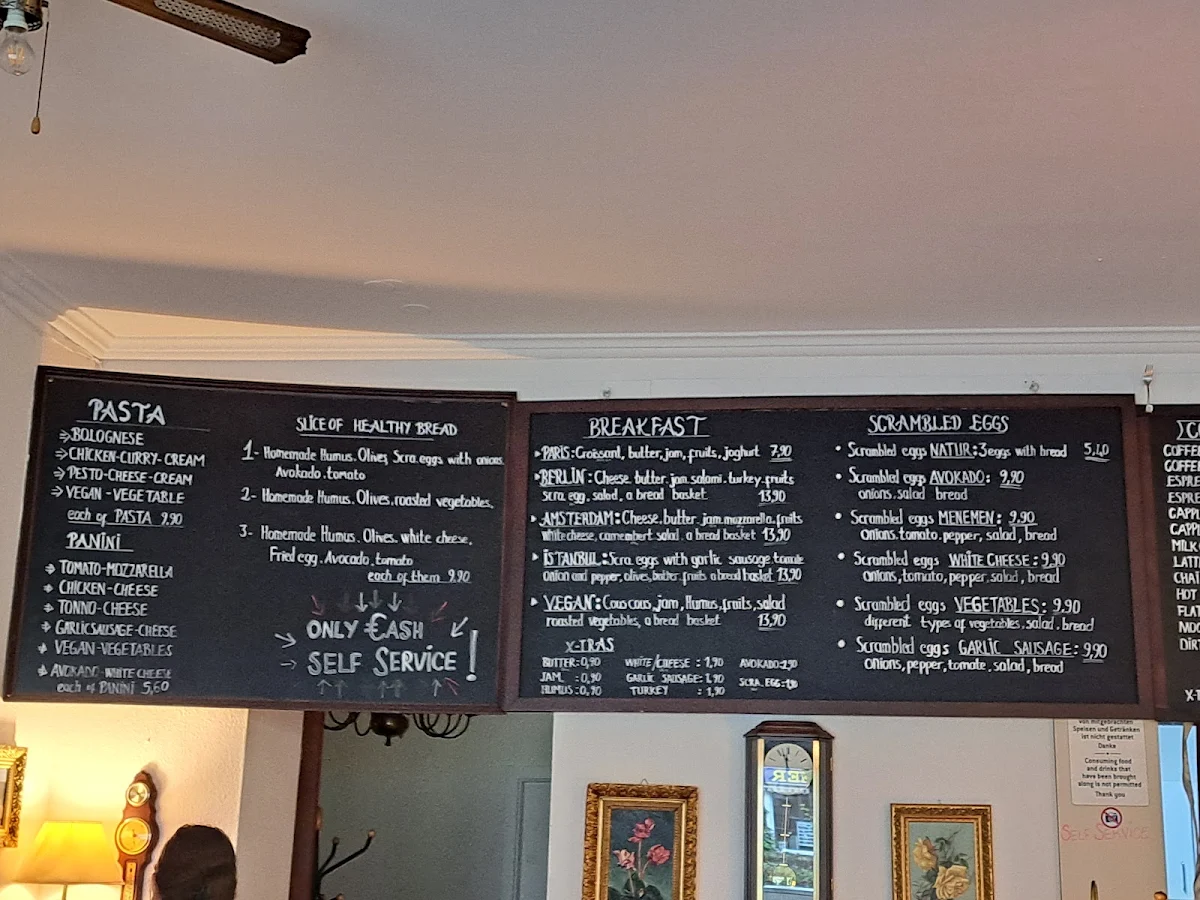 PASTA
BOLOGNESE
CHICKEN-CURRY-CREAM
PESTO-CHEESE-CREAM
VEGAN-VEGETABLE
each of PASTA 9,90
PANINI
TOMATO-MOZZARELLA
CHICKEN-CHEESE
TONNO-CHEESE
GARLICSAUSAGE-CHEESE
VEGAN-VEGETABLES
AVOKADO-WHITE CHEESE
each of PANINI 5,60
SLICE OF HEALTHY BREAD
1- Homemade Humus. Olives, Scra.eggs with onions
Avokado.tomato
2- Homemade Humus. Olives.roasted vegetables.
3- Homemade Humus. Olives. white cheese,
Fried egg. Avocado.tomato
each of them 9,90
ONLY €ASH
SELF SERVICE !
BREAKFAST
PARIS: Croissant, butter, jam, fruits, joghurt 7,90
BERLIN: Cheese. butter. jam. salami. turkey. fruits
Scra. egg. salad. a bread basket. 13,90
AMSTERDAM: Cheese. butter. jam. mozzarella. fruits
white cheese, camembert. salad. a bread basket 13,90
İSTANBUL: Scra. eggs with garlic sausage tomate
onion and pepper, olives, butter. fruits a bread basket 13,90
VEGAN: Couscous, jam, Humus, fruits, salad
roasted vegetables, a bread basket. 13,90
X-TRAS
BUTTER: 0,90 WHITE/CHEESE: 1,90 AVOKADO:
JAM. : 0,90 GARLIC SAUSAGE: 1,90 SCRA. EGG:
HUMUS: 0,90 TURKEY : 1,90
SCRAMBLED EGGS
• Scrambled eggs NATUR: 3eggs with bread 5,40
• Scrambled eggs AVOKADO: 9,90
onions. salad bread
• Scrambled eggs MENEMEN: 9,90
Onions. tomato. pepper, salad, bread
• Scrambled eggs WHITE CHEESE: 9,90
onions, tomato, pepper, salad, bread
• Scrambled eggs VEGETABLES: 9,90
different types of vegetables. salad. bread
• Scrambled eggs GARLIC SAUSAGE: 9,90
Onions, pepper, tomate. salad, bread
COFFE
COFFEE
ESPRE
ESPRE
CAPP
CAPPU
MILK
LATT
CHAI
HOT
FLAT
DIRT
X-T
von mitgebrachten
Speisen und Getränken
ist nicht gestattet
Danke
Consuming food
and drinks that
have been brought
along is not permitted
Thank you
SELF SERVICE